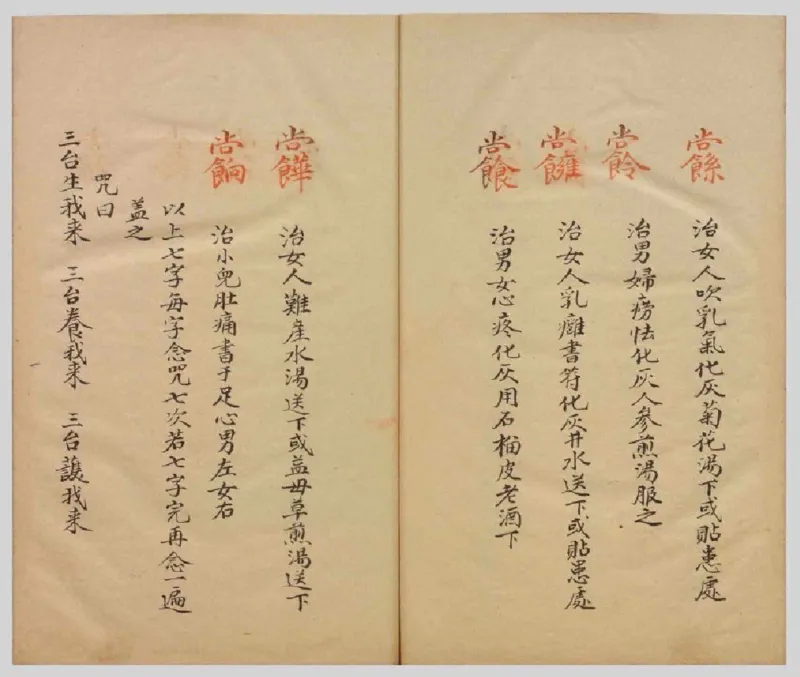 治女人吹乳氣化灰菊花湯下或貼患處
治男婦癆怯化灰人參煎湯服之
治女人乳癰書符化灰井水送下或貼患處
治男女心疼化灰用石榴皮老酒下
治女人難產水湯送下或益母草煎湯送下
治小兒肚痛書于足心男左女右
以上七字每字念咒七次若七字完再念一遍
盖之
咒曰
三台生我来 三台養我来 三台護我来